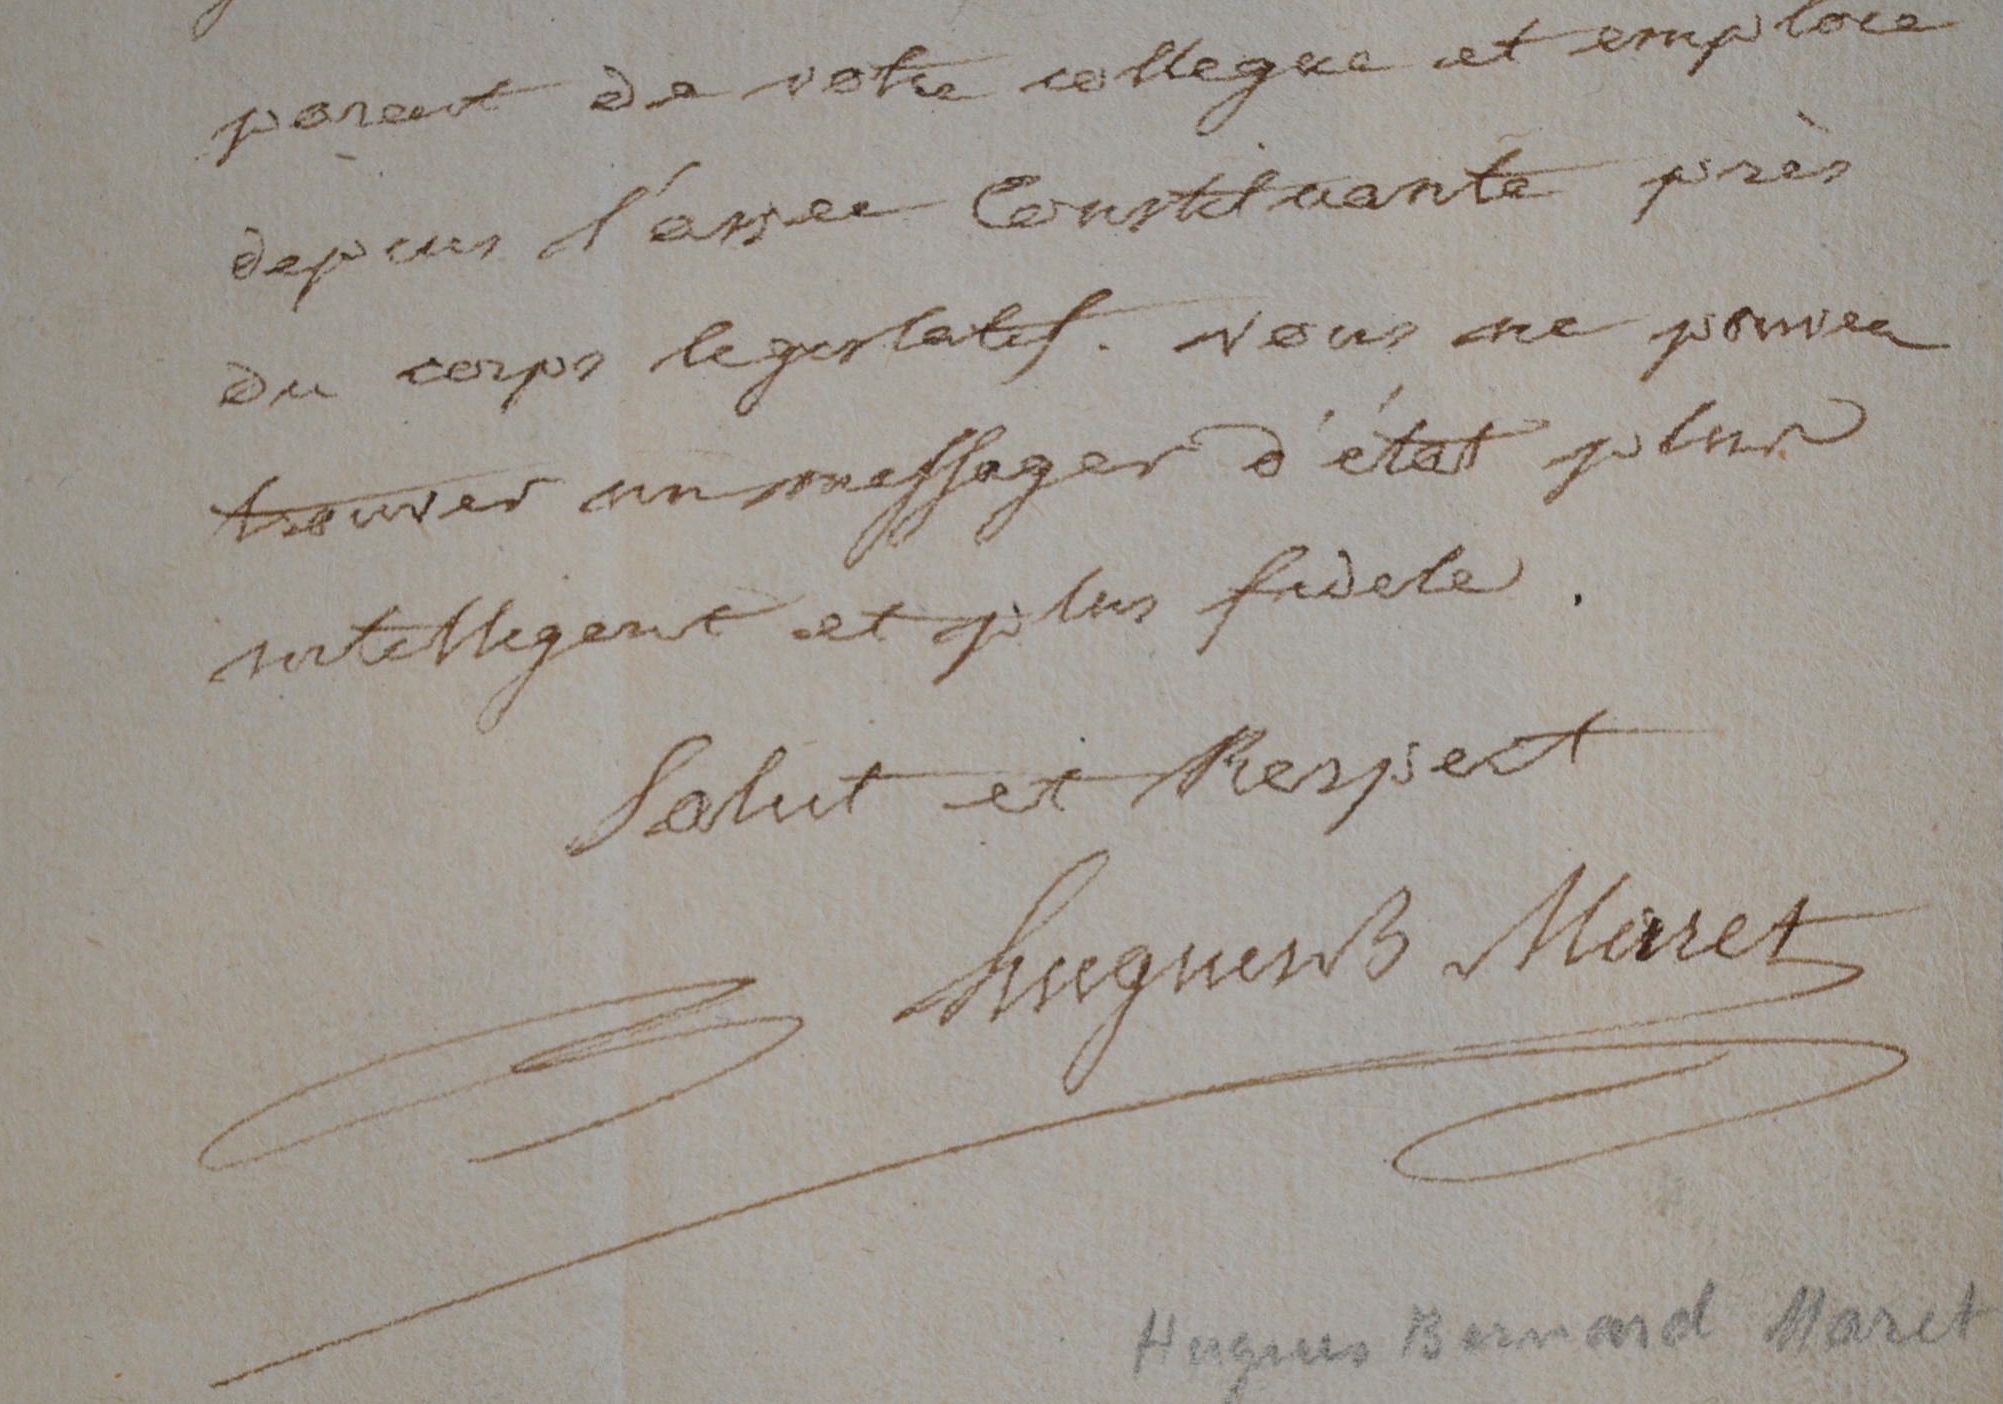 parent de votre collegue et emploie
depuis l'assee Constituante près
du corps legislatif. vous ne pouvez
trouver un messager d'état plus
intelligent et plus fidele.
Salut et Respect
hugues B Maret
Hugues Bernard Maret